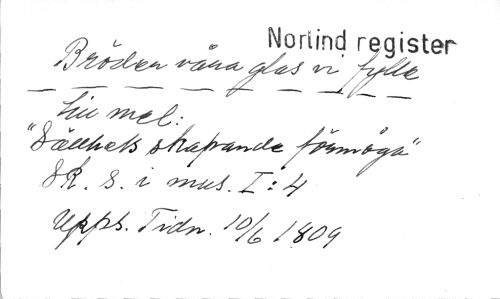 Norlind register
Bröder våra glas vi fylle
till mel:
"Sällhets skapande förmåga"
SK. S. i mus. I:4
Upps. Tidn. 10/6 1809